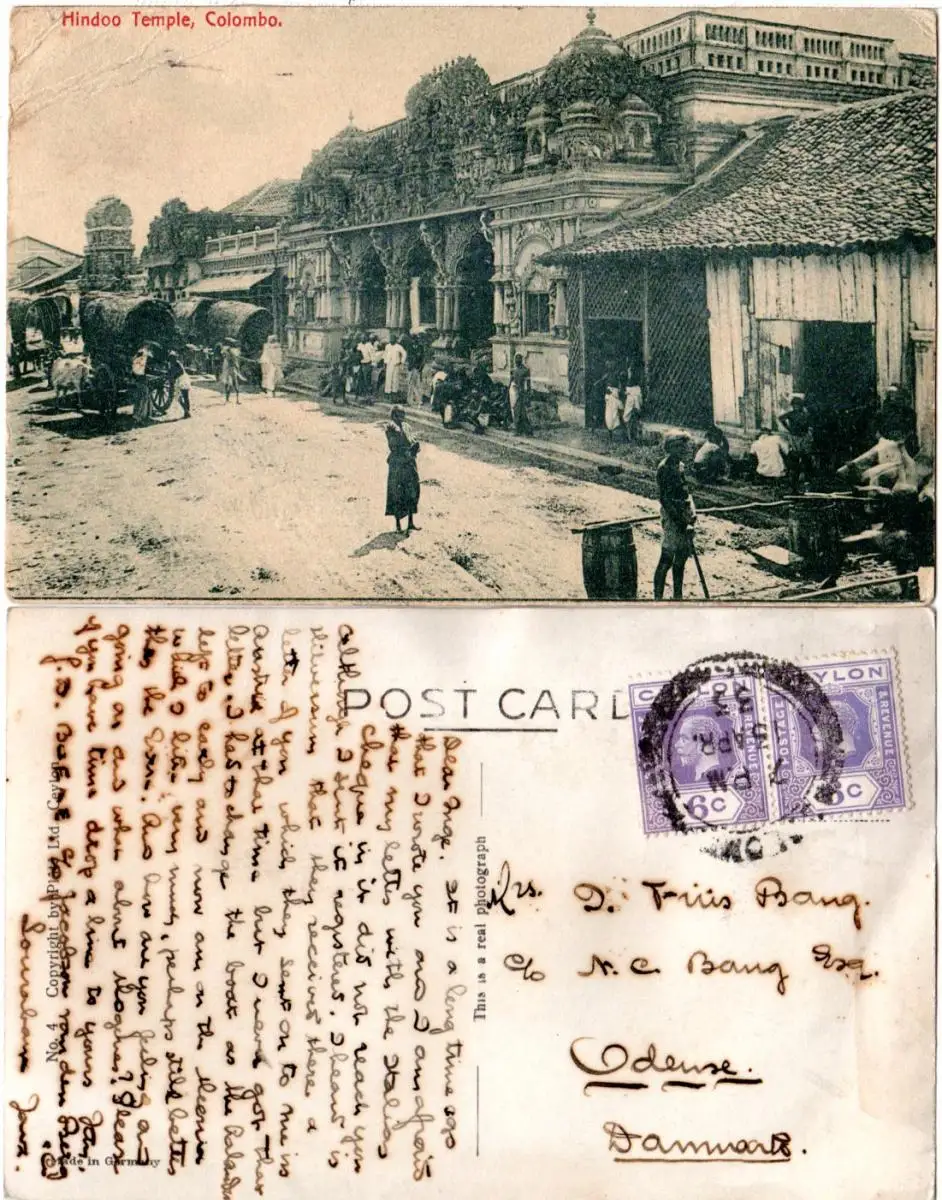 Hindoo Temple, Colombo.
POST CARD
CEYLON
POSTAGE
& REVENUE
6c
CEYLON
POSTAGE
& REVENUE
6c
APR.
Dear Inge. It is a long time ago
that I wrote you and I am afraid
that my letter with the Italian
cheque in it did not reach you
although I sent it registered. I hear
that they received there a
letter of you which they sent on to me
at that time but I never got that
letter. I had to change the boat as the
left so early and now am on the
which I like very much, perhaps still better
than the And how are you feling and
going as and when about Mogens? Please
if you have time drop a line to yours
J. D. c/o Jacobson van den Berg
Sourabaia Java.
This is a real photograph
No. 4 Copyright by Plâté Ltd Ceylon
Made in Germany
Mrs. D. Friis Bang.
c/o N. C. Bang Esq.
Odense.
Danmark.